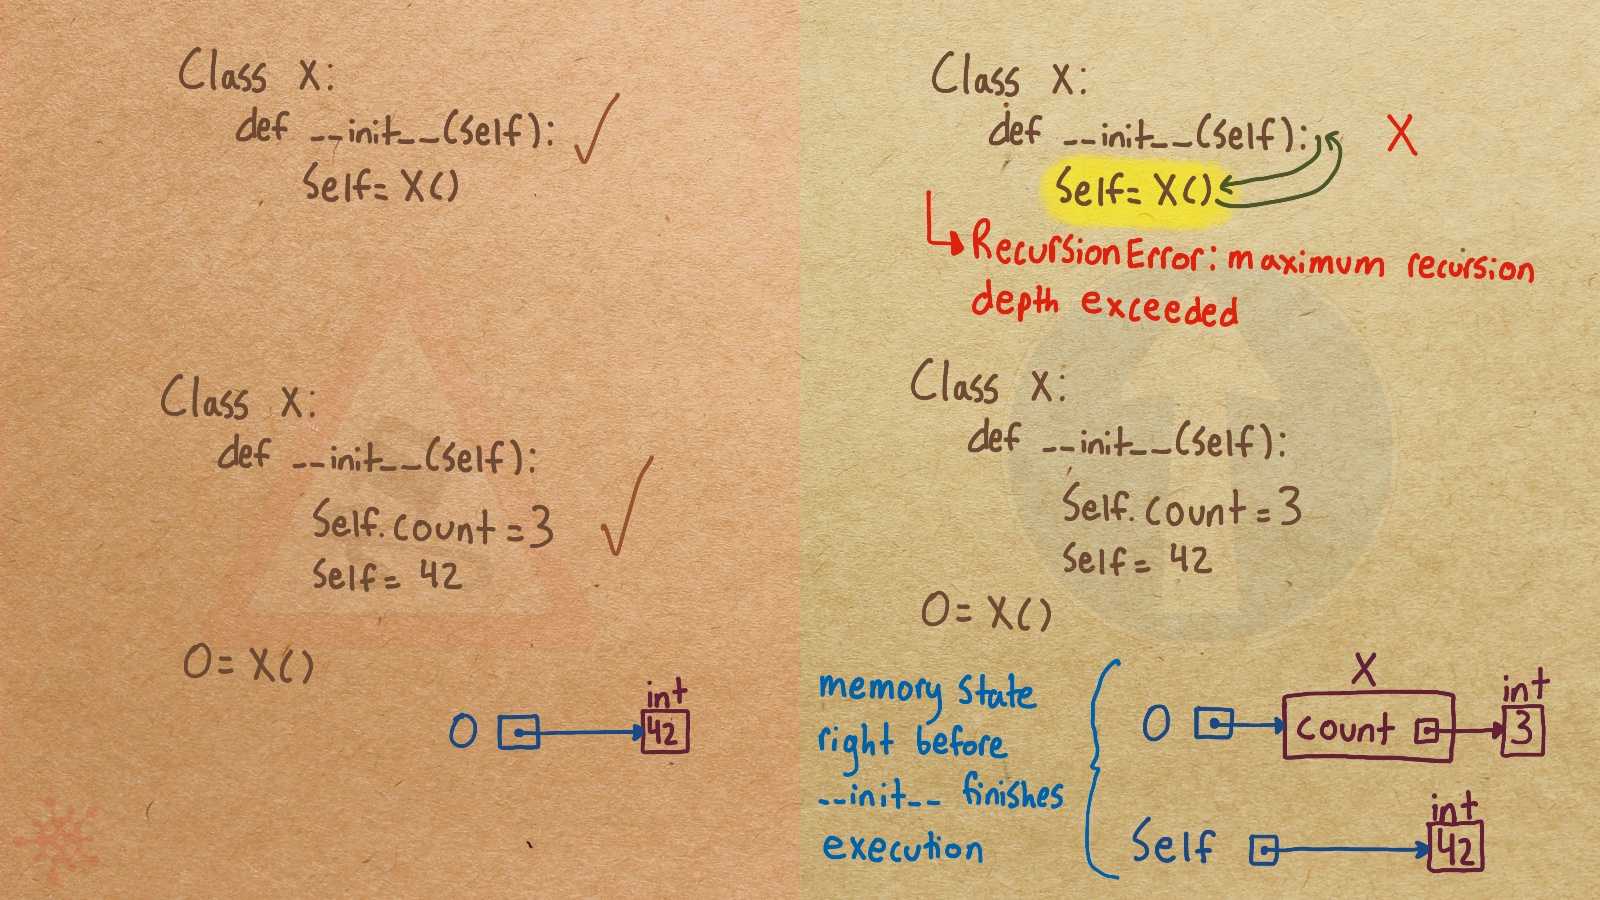 Class X:
def __init__(self):
Self= X()
Class X:
def __init__(self):
Self.count=3
Self= 42
O= X()
O
int
42
Class X:
def __init__(self):
X
Self= X()
RecursionError: maximum recursion
depth exceeded
Class X:
def __init__(self):
Self.count=3
Self= 42
O= X()
memory state
right before
__init__ finishes
execution
X
int
O
count
3
int
Self
42